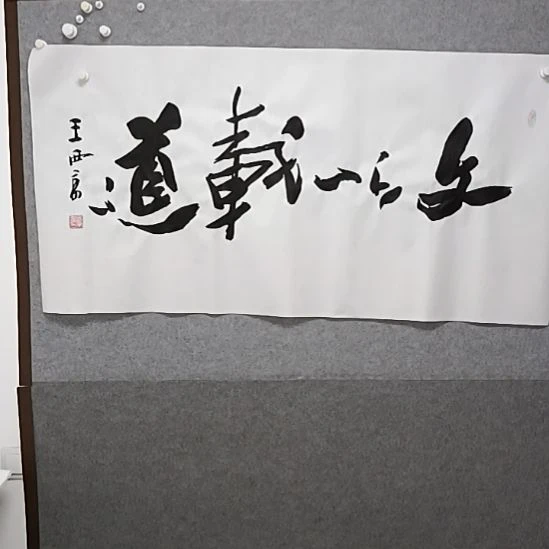 文以載道
王西京